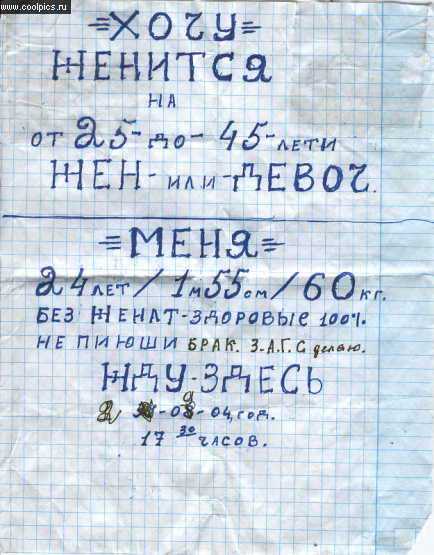 www.coolpics.ru
=ХОЧУ=
ЖЕНИТСЯ
НА
ОТ 25-ДО-45-ЛЕТИ
ЖЕН-ИЛИ-ДЕВОЧ.
=МЕНЯ=
24 ЛЕТ/1м55см/60кг.
БЕЗ ЖЕНАТ-ЗДОРОВЫЕ 100%.
НЕ ПИЮШИ БРАК. З.А.Г.С делаю.
ЖДУ-ЗДЕСЬ
04, год.
17 30 ЧАСОВ.